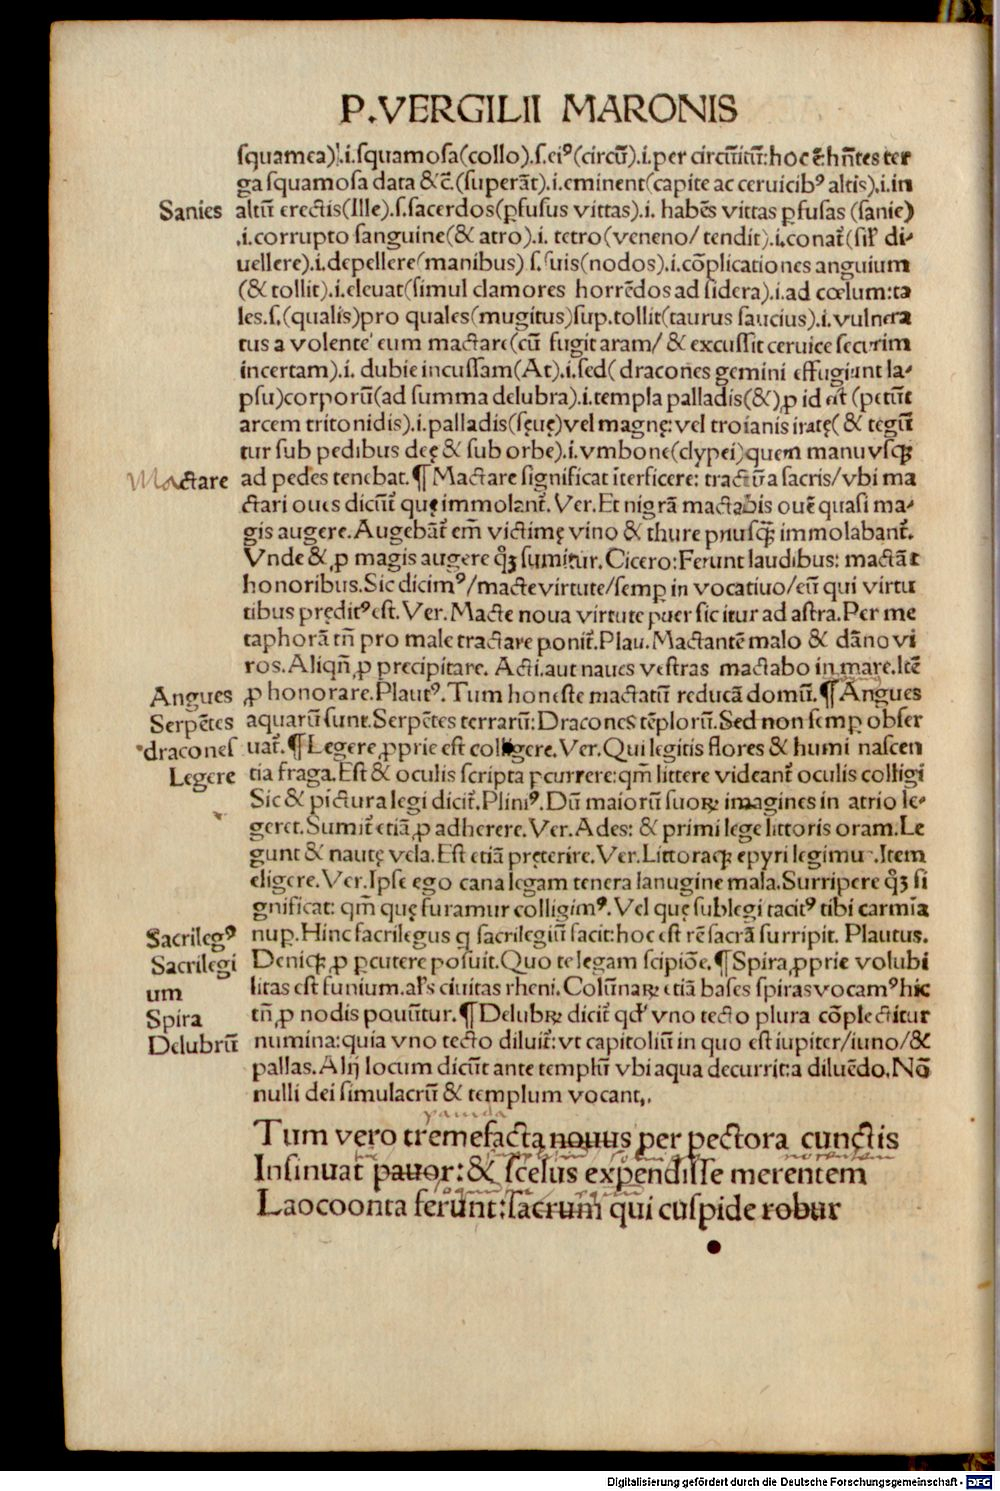 P.VERGILII MARONIS
squamea).i.squamosa(collo).s.ei⁹(circū).i.per circūitū:hoc ē:hn̄tes ter
ga squamosa data &c̄.(superāt).i.eminent(capite ac ceruicib⁹ altis).i.in
Sanies
altū erectis(Ille).s.sacerdos(ꝑfusus vittas).i. habēs vittas ꝑfusas (sanie)
.i.corrupto sanguine(& atro).i. tetro(veneno/ tendit).i.conat᷑(sil̉ di⸗
uellere).i.depellere(manibus) s.suis(nodos).i.cōplicationes anguium
(& tollit).i.eleuat(simul clamores horrēdos ad sidera).i.ad cœlum:ta
les.s.(qualis)pro quales(mugitus)sup.tollit(taurus saucius).i.vulnera
tus a volente eum mactare(cū fugit aram/ & excussit ceruice securim
incertam).i. dubie incussam(At).i.sed( dracones gemini effugiunt la⸗
psu)corporū(ad summa delubra).i.templa palladis(&)ꝓ id est (petūt
arcem tritonidis).i.palladis(sęuę)vel magnę:vel troianis iratę( & tegū
tur sub pedibus deę & sub orbe).i.vmbone(clypei)quem manu vsqꝫ
Mactare
ad pedes tenebat.¶ Mactare significat īterficere: tractū a sacris/vbi ma
ctari oues dicūt᷑ quę immolant᷑. Ver.Et nigrā mactabis ouē quasi ma⸗
gis augere.Augebāt᷑ em̄ victimę vino & thure priusqꝫ immolabant᷑.
Vnde & ꝓ magis augere qn̄qꝫ sumitur.Cicero:Ferunt laudibus: mactāt
honoribus.Sic dicim⁹/macte virtute/semꝑ in vocatiuo/eū qui virtu
tibus prędit⁹ est.Ver.Macte noua virtute puer sic itur ad astra.Per me
taphorā tn̄ pro male tractare ponit᷑.Plau.Mactantē malo & dāno vi
ros.Aliqn̄ ꝓ precipitare. Acti.aut naues vestras mactabo in mare.Itē
Angues
ꝓ honorare.Plaut⁹.Tum honeste mactatū reducā domū.¶ Angues
Serpētes
aquarū sunt.Serpētes terrarū:Dracones tēplorū.Sed non semꝑ obser
dracones
uat᷑.¶ Legere ꝓprie est colligere.Ver.Qui legitis flores & humi nascen
Legere
tia fraga.Est & oculis scripta ꝑcurrere:qm̄ littere videant᷑ oculis colligi
Sic & pictura legi dicit᷑.Plini⁹.Dū maiorū suoꝝ imagines in atrio le⸗
geret.Sumit᷑ etiā ꝓ adherere.Ver.Ades: & primi lege littoris oram.Le
gunt & nautę vela.Est etiā pręterire.Ver.Littoraqꝫ epyri legimus.Item
eligere.Ver.Ipse ego cana legam tenera lanugine mala.Surripere qn̄qꝫ si
gnificat: qm̄ quę furamur colligim⁹.Vel quę sublegi tacit⁹ tibi carmīa
Sacrileg⁹
nuꝑ.Hinc sacrilegus q sacrilegiū facit:hoc est rē sacrā surripit. Plautus.
Sacrilegi
Deniqꝫ ꝓ ꝑcutere posuit.Quo te legam scipiōe.¶ Spira ꝓprie volubi
um
litas est funium.al̉s ciuitas rheni.Colūnaꝝ etiā bases spiras vocam⁹hic
Spira
tn̄ ꝓ nodis ponūtur.¶ Delubꝝ dicit᷑ qd̉ vno tecto plura cōplectitur
Delubrū
numina:quia vno tecto diluit᷑:vt capitoliū in quo est iupiter/iuno/&
pallas.Alij locum dicūt ante templū vbi aqua decurrit:a diluēdo.Nō
nulli dei simulacrū & templum vocant.
Tum vero tremefacta nouus per pectora cunctis
Insinuat pauor: & scelus expendisse merentem
Laocoonta ferunt: sacrum qui cuspide robur
Digitalisierung gefördert durch die Deutsche Forschungsgemeinschaft - DFG